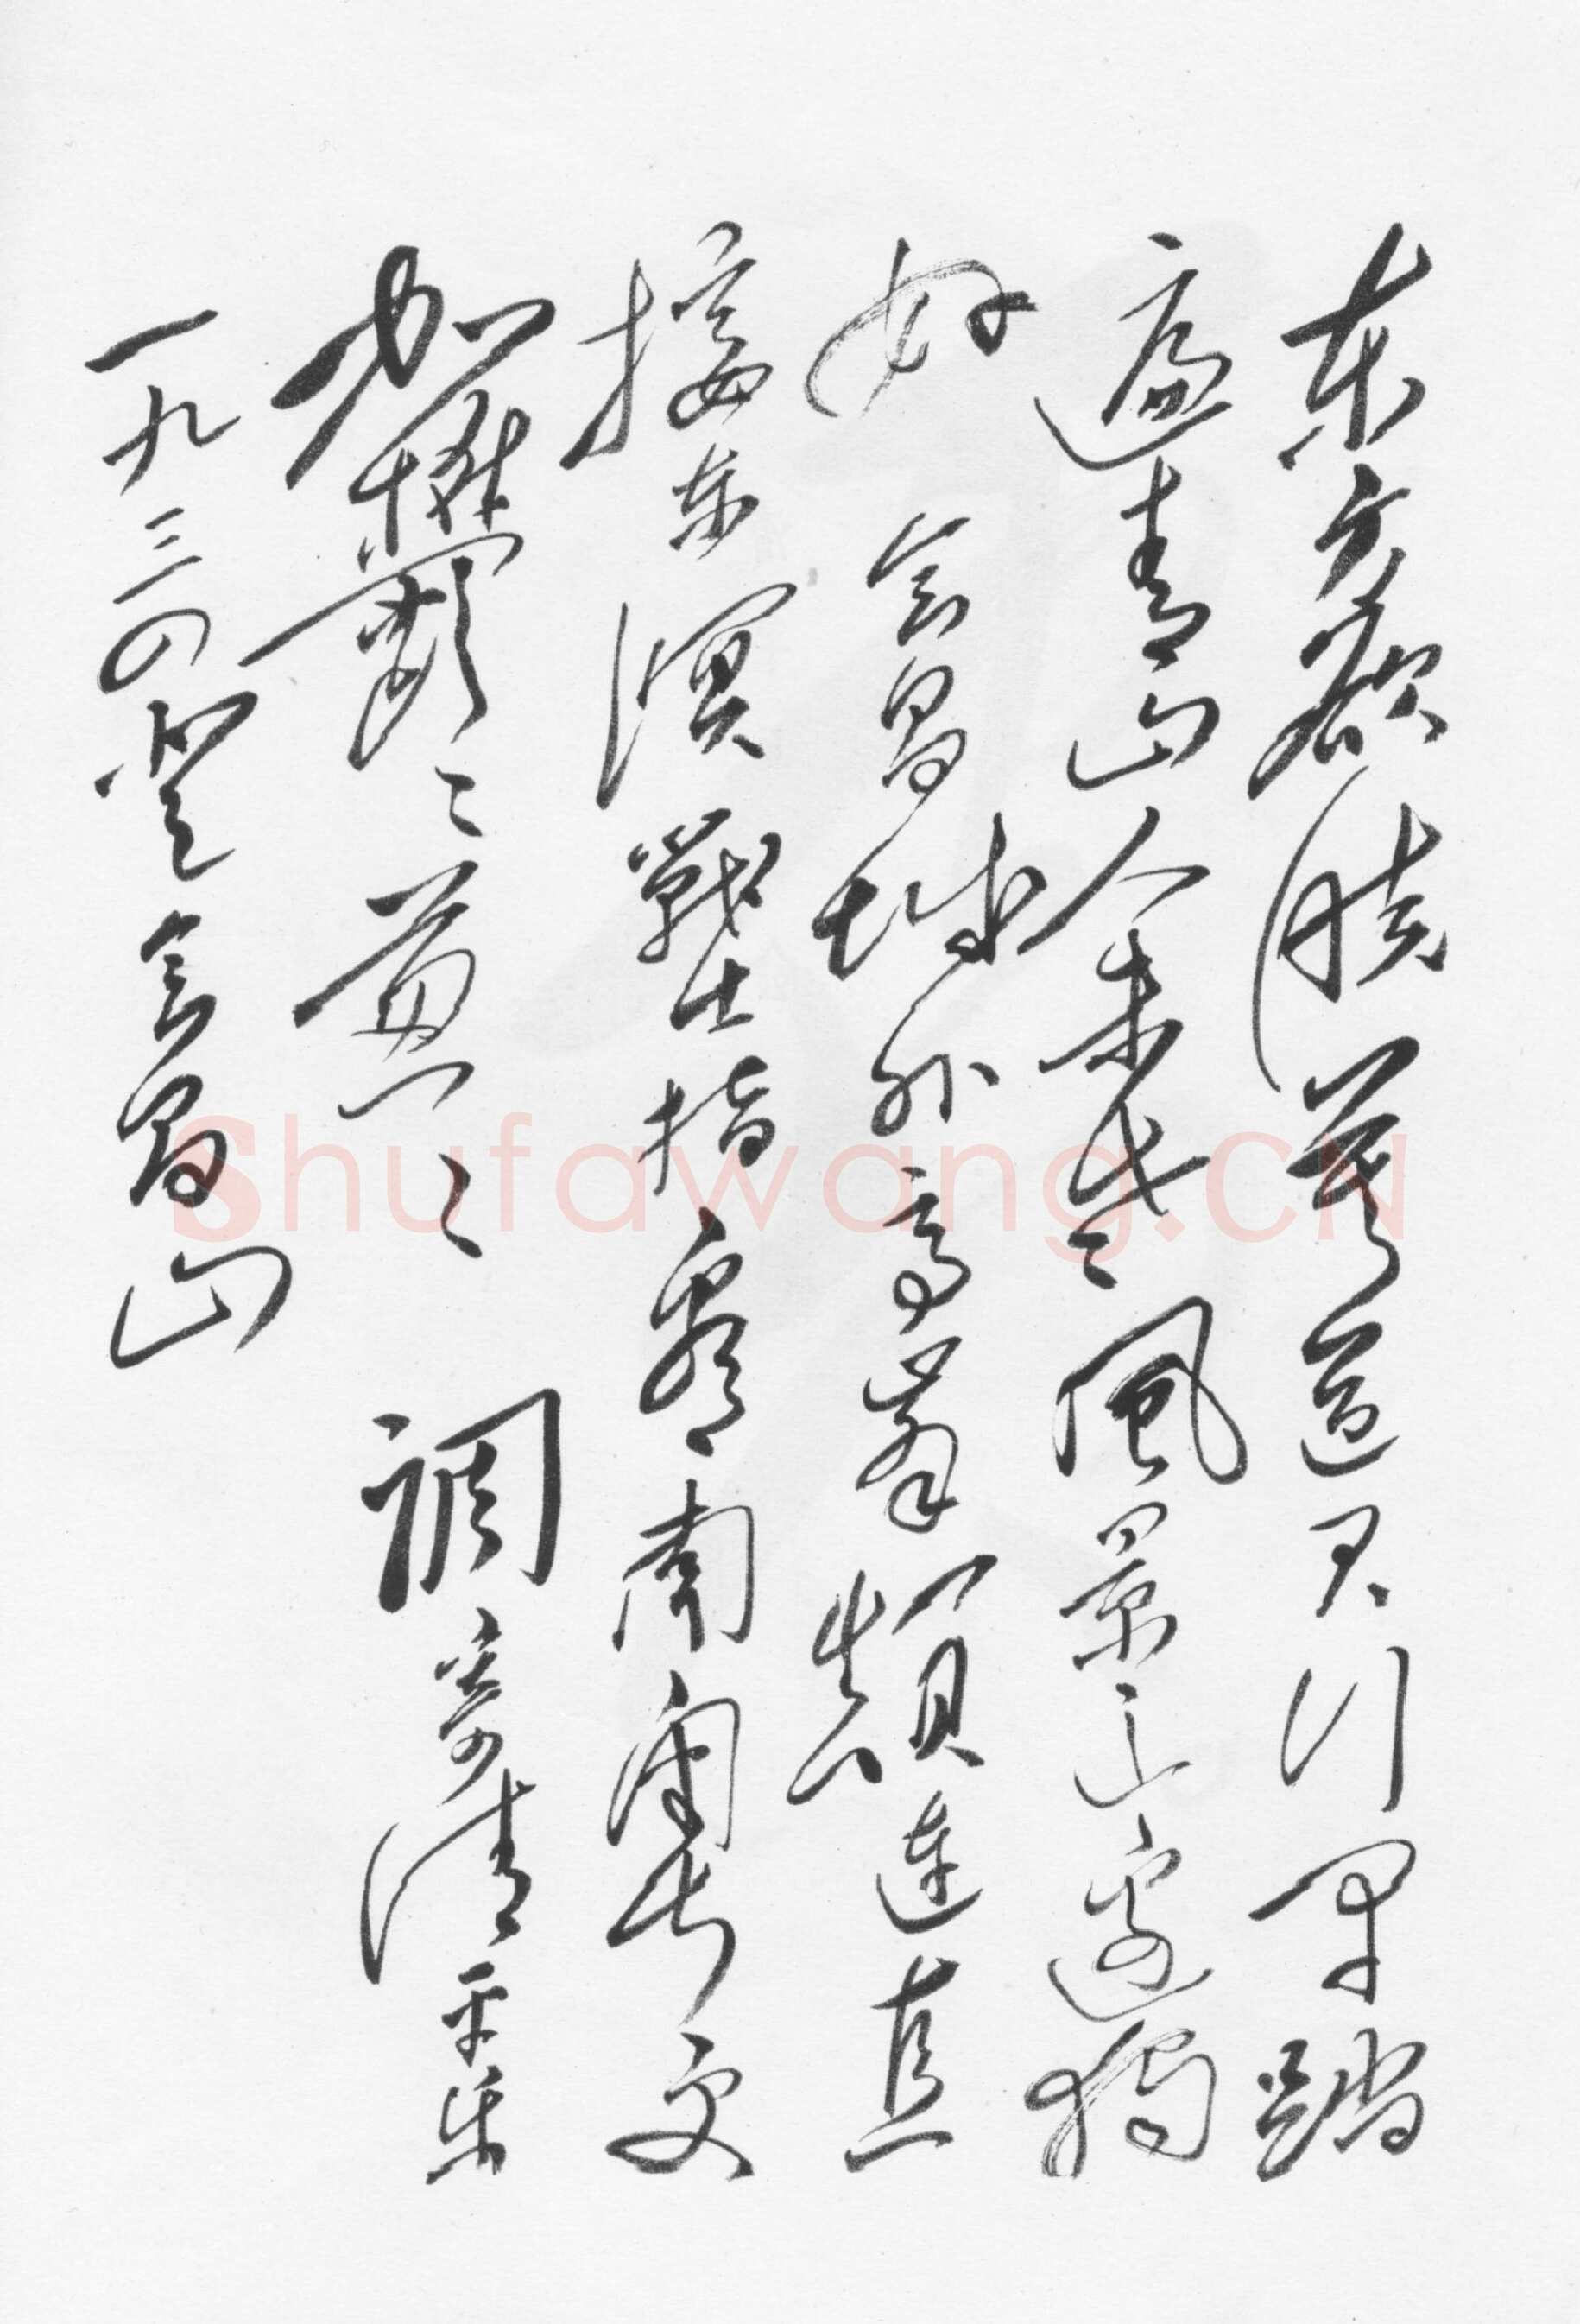 东方欲晓莫道君行早踏
遍青山人未老風景这邊獨
好 会昌城外高峯顛連直
接东溟戰士指看南粤更
加鬱々葱々 調寄清平乐
一九三四登会昌山
Shufawang.CN